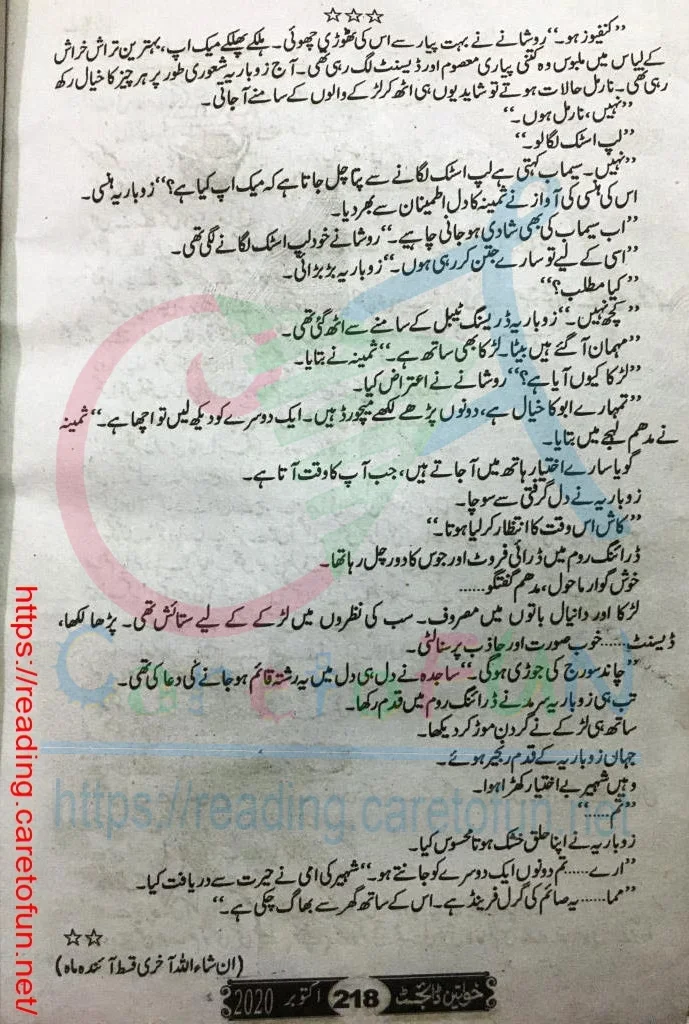 ☆☆☆
”کنفیوز ہو۔“ روشانے نے بہت پیار سے اس کی ٹھوڑی چھوئی۔ ہلکے پھلکے میک اپ، بہترین تراش خراش
کے لباس میں ملبوس وہ کتنی پیاری معصوم اور ڈیسنٹ لگ رہی تھی۔ آج زوباریہ شعوری طور پر ہر چیز کا خیال رکھ
رہی تھی۔ نارمل حالات ہوتے تو شاید یوں ہی اٹھ کر لڑکے والوں کے سامنے آجاتی۔
”نہیں، نارمل ہوں۔“
”لپ اسٹک لگالو۔“
”نہیں۔ سیماب کہتی ہے لپ اسٹک لگانے سے پتا چل جاتا ہے کہ میک اپ کیا ہے؟“ زوباریہ ہنسی۔
اس کی ہنسی کی آواز نے ثمینہ کا دل اطمینان سے بھر دیا۔
”اب سیماب کی بھی شادی ہو جانی چاہیے۔“ روشانے خود لپ اسٹک لگانے لگی تھی۔
”اسی کے لیے تو سارے جتن کر رہی ہوں۔“ زوباریہ بڑبڑائی۔
”کیا مطلب؟“
”کچھ نہیں۔“ زوباریہ ڈریسنگ ٹیبل کے سامنے سے اٹھ گئی تھی۔
”مہمان آگئے ہیں بیٹا۔ لڑکا بھی ساتھ ہے۔“ ثمینہ نے بتایا۔
”لڑکا کیوں آیا ہے؟“ روشانے نے اعتراض کیا۔
”تمہارے ابو کا خیال ہے، دونوں پڑھے لکھے میچورڈ ہیں۔ ایک دوسرے کو دیکھ لیں تو اچھا ہے۔“ ثمینہ
نے مدھم لہجے میں بتایا۔
گویا سارے اختیار ہاتھ میں آجاتے ہیں، جب آپ کا وقت آتا ہے۔
زوباریہ نے دل گرفتی سے سوچا۔
”کاش اس وقت کا انتظار کر لیا ہوتا۔“
ڈرائنگ روم میں ڈرائی فروٹ اور جوس کا دور چل رہا تھا۔
خوش گوار ماحول، مدھم گفتگو......
لڑکا اور دانیال باتوں میں مصروف۔ سب کی نظروں میں لڑکے کے لیے ستائش تھی۔ پڑھا لکھا،
ڈیسنٹ...... خوب صورت اور جاذب پرسنالٹی۔
”چاند سورج کی جوڑی ہوگی۔“ ساجدہ نے دل ہی دل میں یہ رشتہ قائم ہو جانے کی دعا کی تھی۔
تب ہی زوباریہ سرمد نے ڈرائنگ روم میں قدم رکھا۔
ساتھ ہی لڑکے نے گردن موڑ کر دیکھا۔
جہاں زوباریہ کے قدم زنجیر ہوئے۔
وہیں شہیر بے اختیار کھڑا ہوا۔
”تم.....“
زوباریہ نے اپنا حلق خشک ہوتا محسوس کیا۔
”ارے...... تم دونوں ایک دوسرے کو جانتے ہو۔“ شہیر کی امی نے حیرت سے دریافت کیا۔
”مما...... یہ صائم کی گرل فرینڈ ہے۔ اس کے ساتھ گھر سے بھاگ چکی ہے۔“
☆☆
(ان شاء اللہ آخری قسط آئندہ ماہ)
خواتین ڈائجسٹ 218 اکتوبر 2020
https://reading.caretofun.net/
https://reading.caretofun.net